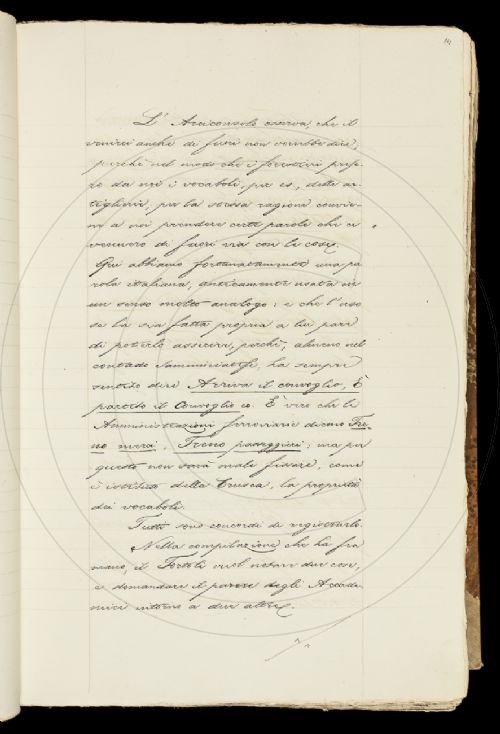 14
L'Arciconsolo osserva, che il
venirci anche di fuori non vorrebbe dire,
perchè nel modo che i forestieri prese-
ro da noi i vocaboli, per es, della ar-
tiglieria, per la stessa ragione convie-
ne a noi prendere certe parole che ci
vennero di fuori via con le cose.
Qui abbiamo fortunatamente una pa
rola italiana, anticamente usata in
un senso molto analogo: e che l'uso
se la sia fatta propria a lui pare
di poterlo asserire, perchè, almeno nel
contado Samminiatese, ha sempre
sentito dire Arriva il convoglio, È
partito il Convoglio ec. È vero che le
Amministrazioni ferroviarie dicono Tre-
no merci, Treno passeggieri; ma per
questo non sarà male fissare, come
è istituto della Crusca, la proprietà
dei vocaboli.
Tutti sono concordi di registrarlo
Nella compilazione che ha fra
mano, il Tortoli vuol notare due cose,
e domandare il parere degli Accade-
mici intorno a due altre.